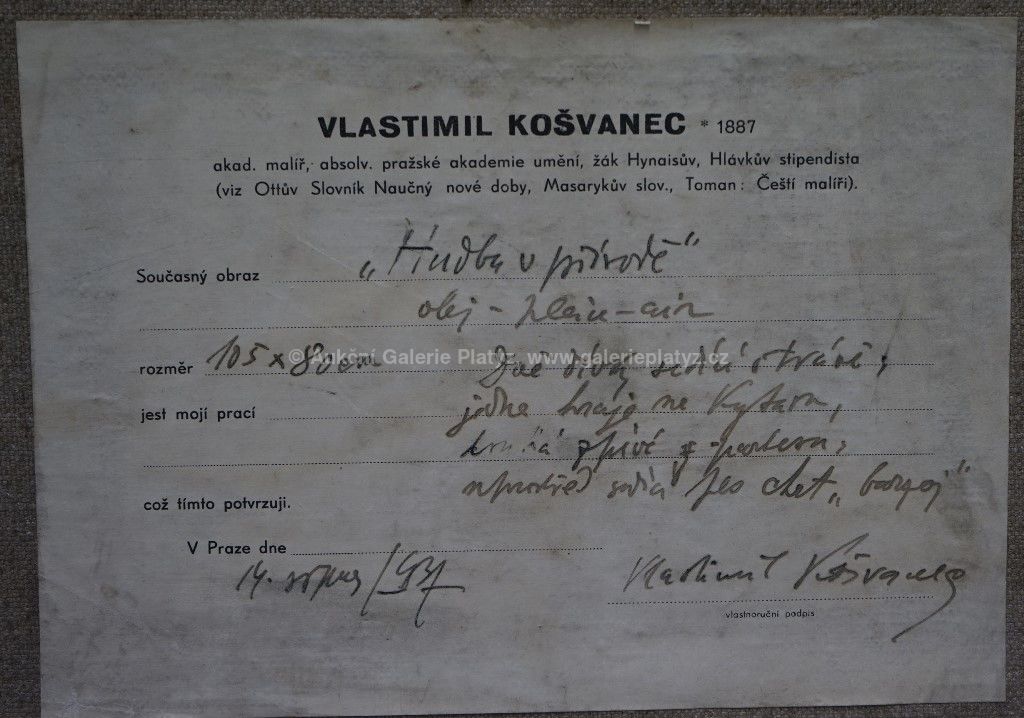 VLASTIMIL KOŠVANEC * 1887
akad. malíř, absolv. pražské akademie umění, žák Hynaisův, Hlávkův stipendista
(viz Ottův Slovník Naučný nové doby, Masarykův slov., Toman: Čeští malíři).
Současný obraz „Hudba v přírodě"
olej - plein-air
rozměr 105 x 80 cm Dvě dívky sedící v trávě,
© Aukční Galerie Platýz www.galerieplatyz.cz
jest mojí prací jedna hraje na kytaru,
druhá zpívá z
což tímto potvrzuji. uprostřed sedící pes chrt „barzoj"
V Praze dne
14. srpna
Vlastimil Košvanec
vlastnoruční podpis